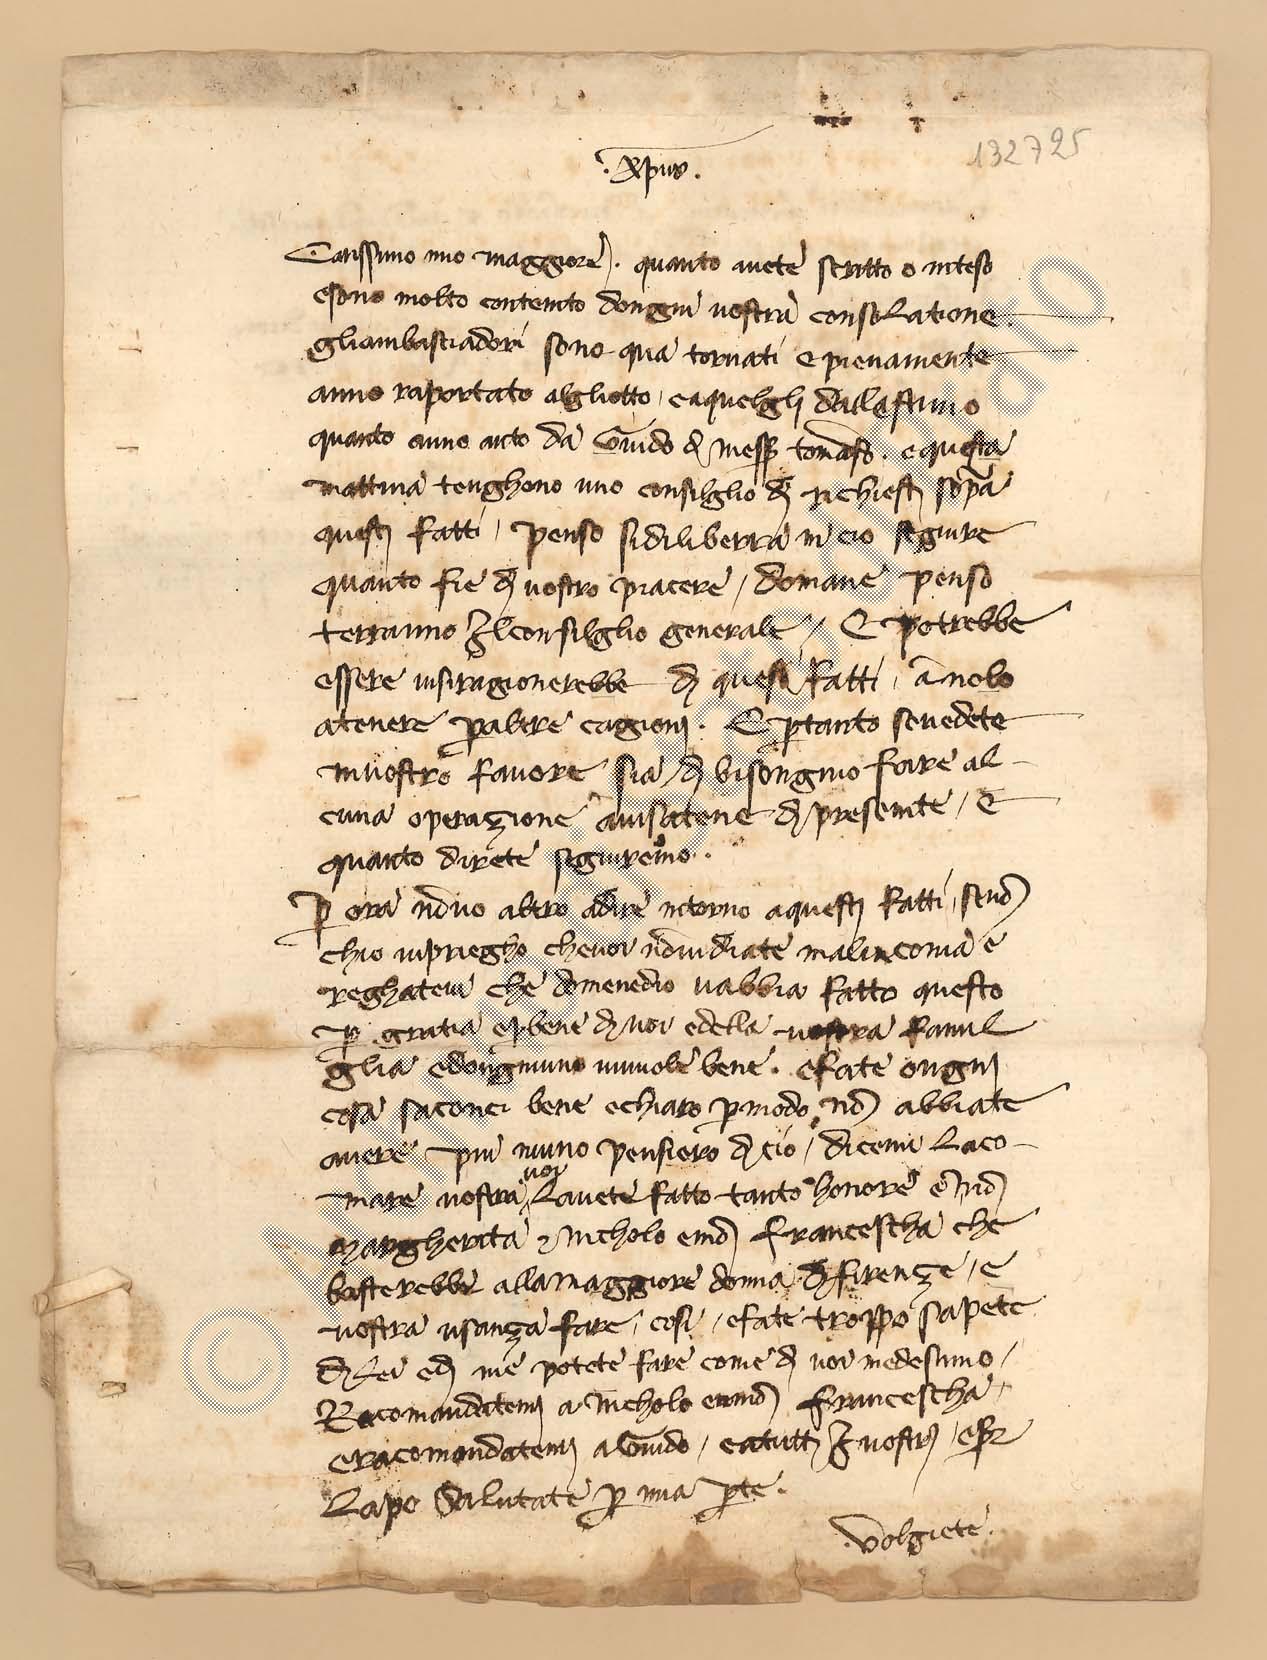 132725
.Xpus.
Carissimo mio maggiore). quanto avete scritto o inteso
esono molto contento dongni vostra consolatione.
gliambasciadori sono qua tornati e pienamente
anno raportato algliotto, eaquelgli dallastimo
quanto anno auto da Guido d messer tomaso. e questa
mattina tenghono uno consilglio d richiesti sopra
questi fatti, penso sidiliberra in cio seguire
quanto fie d vostro piacere, domane penso
terranno Ilconsilglio generale, E potrebbe
essere visiragionerebbe d questi fatti, annolo
atenere p altre cagioni. E ptanto sevedete
invostro favore sia d bisongnio fare al-
cuna operazione avisatene d presente, E
quanto direte seguiremo.
P ora no vo altro adire intorno aquesti fatti, senō
chio vipriegho chevoi nō vidiate malinconia e
reghatevi che domenedio vabbia fatto questo
p gratia e pbene d voi edella vostra famil
glia edongniuno vivuole bene. efate ongni
cosa saconci bene echiaro pmodo nō abbiate
avere piu niuno pensiero d cio, dicemi laco-
mare vostra voi lavete fatto tanto honore e mō
margherita e nicholo emō francescha che
basterebbe allamaggiore donna d firenze, e
vostra usanza fare cosi, efate troppo sapete
d lei ed me potete fare come d voi medesimo,
Racomandatemi a nicholo emō francescha,
eracomandatemi aGuido, eatutti I vostri, eser
Lapo Salutate p mia pte.
.volgiete.
© Archivio di Stato di Prato